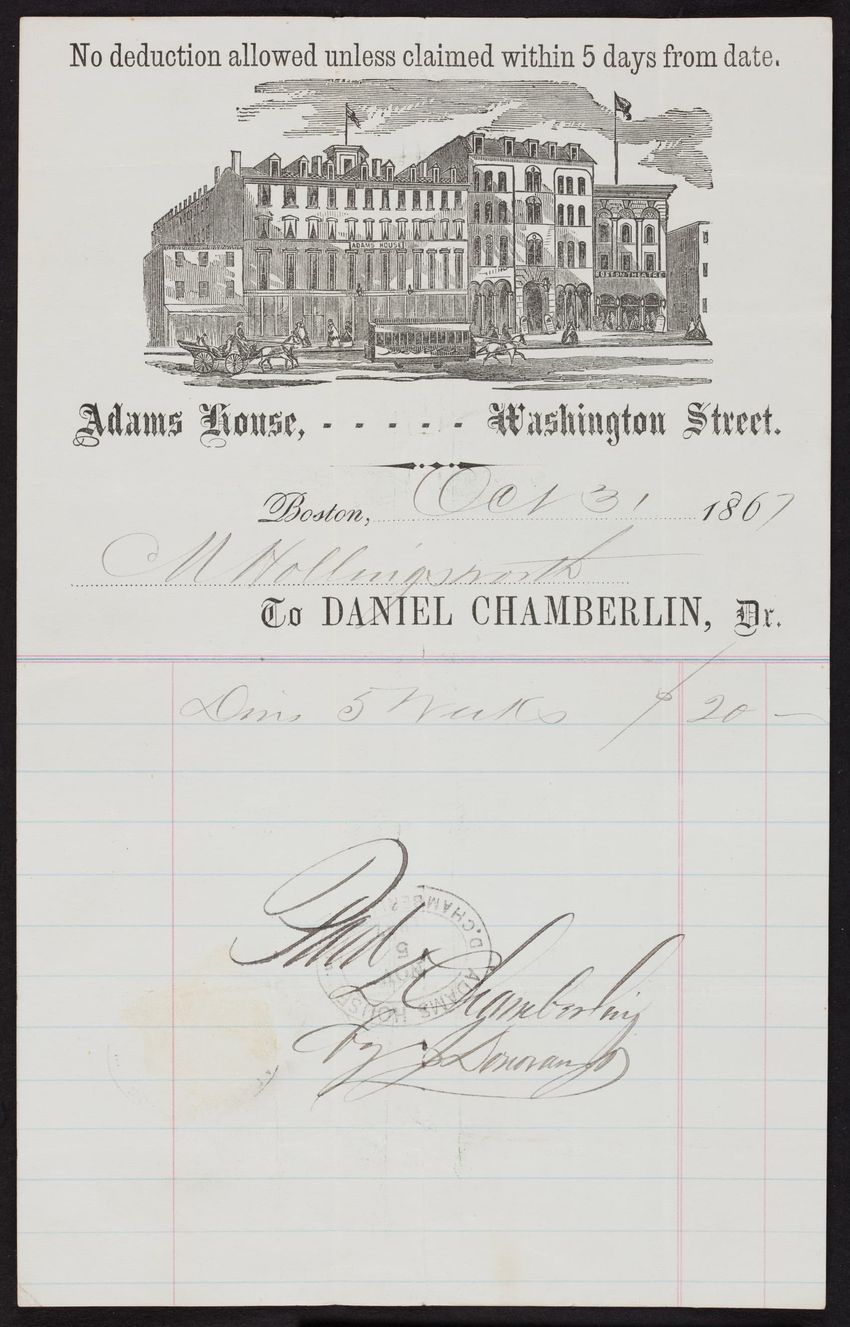 No deduction allowed unless claimed within 5 days from date.
ADAMS HOUSE
BOSTON THEATRE
Adams House, - - - - - Washington Street.
Boston, Oct 31 1867
M Hollingsworth
To DANIEL CHAMBERLIN, Dr.
5 Weeks $ 20 —
Paid
D. CHAMBER
ADAMS HOUSE
NOV
5
D Chamberlin
by J Donovan